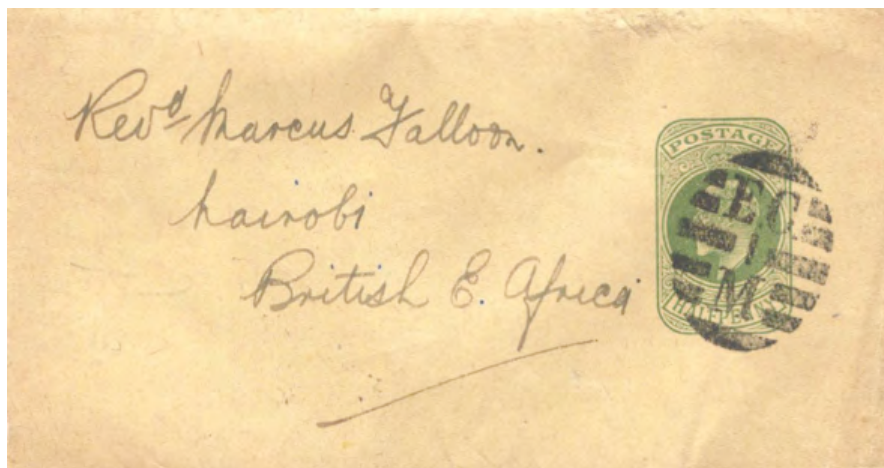 Revd Marcus Falloon.
Nairobi
British E. Africa
POSTAGE
HALFPENNY
E C
1
M